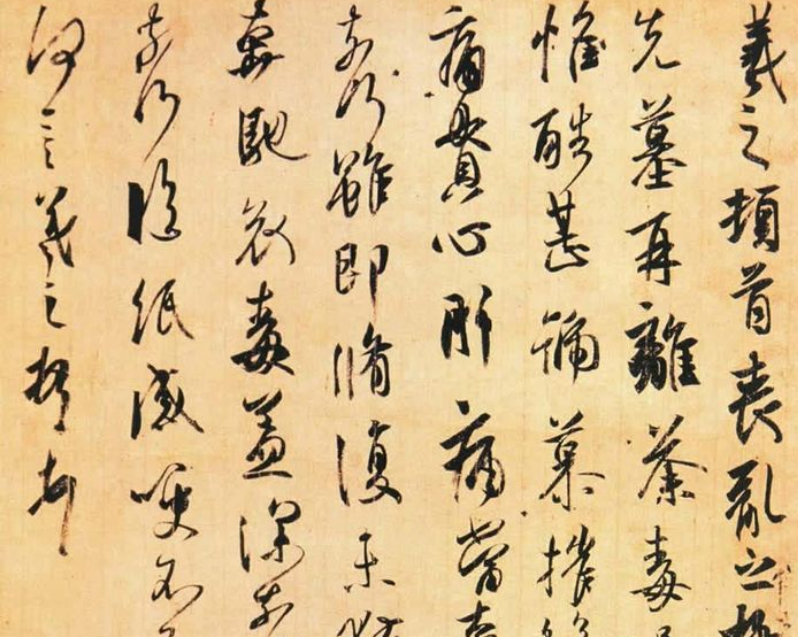 羲之頓首喪亂之極
先墓再離荼毒追
惟酷甚號慕摧絶
痛貫心肝痛當奈
奈何雖即脩復未獲
奔馳哀毒益深奈
奈何臨紙感哽不知
何言羲之頓首